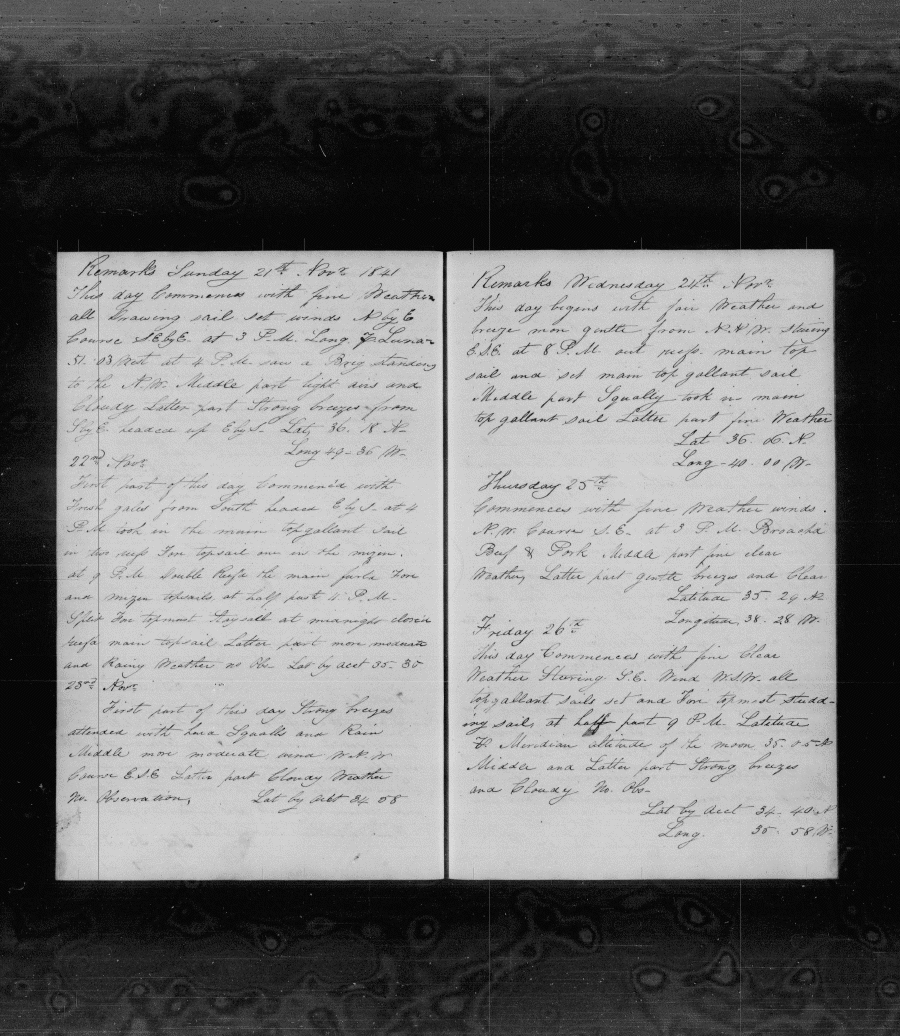 Remarks Sunday 21st Novr 1841
This day Commences with fine Weather
all Drawing sail set winds N by E
Course SE by E. at 3 P.M. Long. by Lunar
51. 03 West at 4 P.M. saw a Brig standing
to the N.W. Middle part light airs and
Cloudy Latter part Strong breezes from
S by E headed up E by S. Lat. 36. N
Long 49-36 W.
22nd Novr
First part of this day Commenced with
Fresh gales from South headed E by S. at 4
P.M. took in the main topgallant sail
in two reefs Fore topsail one in the mizen.
at 9 P.M. Double Reefd the main furld Fore
and mizen topsails at half past 11. P.M.
Split Fore topmost Staysail at midnight close
reefd main topsail Latter part more moderate
and Rainy Weather no Obs. Lat by acct 35-30
23rd Novr
First part of this day Strong breezes
attended with Squalls and Rain
Middle more moderate wind W.N.W
Course E.S.E Latter part Cloudy Weather
No. Observation, Lat by acct 34 58
Remarks Wednesday 24th Novr
This day begins with fair Weather and
breeze more gentle from N.W. Stearing
E.S.E. at 8 P.M out reefs. main top
sail and set main top gallant sail
Middle part Squally took in main
top gallant sail Latter part fine Weather
Lat 36. 06 N.
Long - 40. 00 W.
Thursday 25th
Commences with fine Weather winds.
N.W. Course S.E. at 3 P.M. Broachd
Beef & Pork Middle part fine clear
Weather, Latter part gentle breezes and Clear
Latitude 35. 29 N
Longitude, 38. 28 W.
Friday 26th
This day Commences with fine Clear
Weather Stearing S.E. Wind W.S.W. all
topgallant sails set and Fore topmost studd-
ing sails at half past 9 P.M. Latitude
by Meridian altitude of the moon 35. 05 N
Middle and Latter part Strong breezes
and Cloudy No. Obs-
Lat by acct 34. 40. N
Long. 35. 58 W.